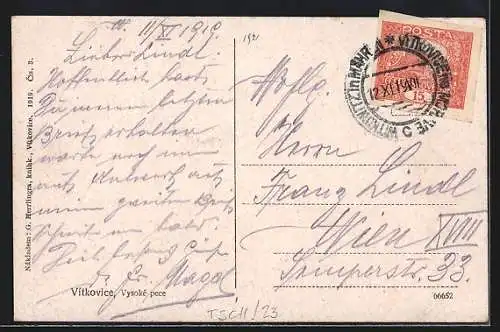 W. 11/XI 1919
Lieber Lindl.
Hoffentlich hast
Du meinen letzten
Brief erhalten
warte noch immer
auf Antwort auf
meinen zweiten Brief
schreibe mir bald.
Magal
Nákladem: G. Herrlinger, knihk., Vítkovice, 1919. Čís. 3.
Vítkovice, Vysoké pece
192
POŠTA
15
12.XI.19
Wohlg.
Herrn
Franz Lindl
Wien XVIII
Semperstr. 33.
66652
TSCH/23